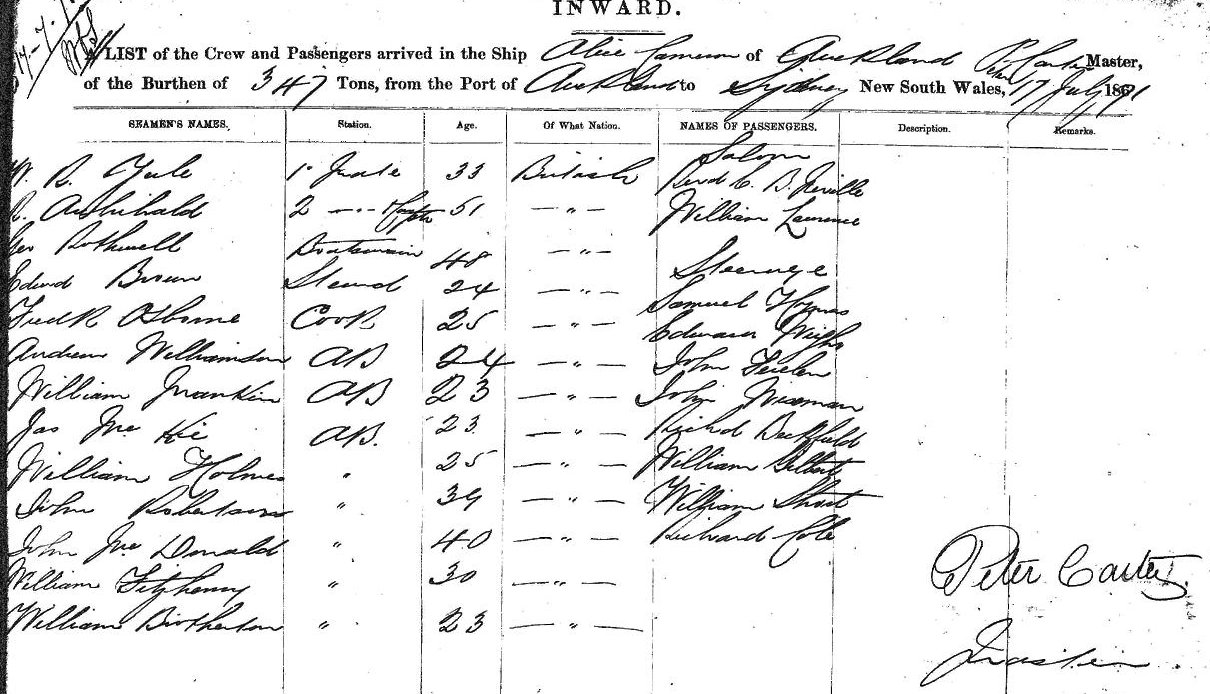 INWARD.
A LIST of the Crew and Passengers arrived in the Ship Alice Cameron of Auckland P. Carter Master,
of the Burthen of 347 Tons, from the Port of Auckland to Sydney New South Wales, 17 July 1871
SEAMEN'S NAMES. Station. Age. Of What Nation. NAMES OF PASSENGERS. Description. Remarks.
Saloon
W. R. Yule 1st Mate 33 British Revd C. B. Neville
R. Archibald 2 — " — 51 — " — William Lawrence
Geo Rothwell Boatswain 48 — " —
Steerage
Edwd Brown Steward 24 — " —
Samuel Haynes
Fredk Osborne Cook 25 — " — Edward
Andrew Williamson AB 24 — " — John
William Frankin AB 23 — " — John Wiseman
Jas McKie AB. 23 — " — Richd Beckfield
William Holmes " 25 — " — William Gilbert
John Robertson " 39 — " — William Short
John McDonald " 40 — " — Richard Cole
William Fitzhenry " 30 — " —
William Brotherton " 23 — " —
Peter Carter.